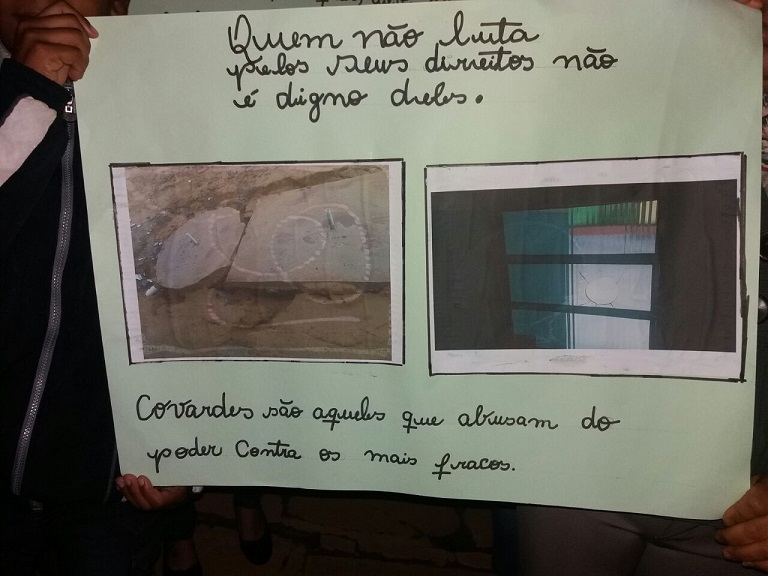 Quem não luta
pelos seus direitos não
é digno deles.
Covardes são aqueles que abusam do
poder contra os mais fracos.